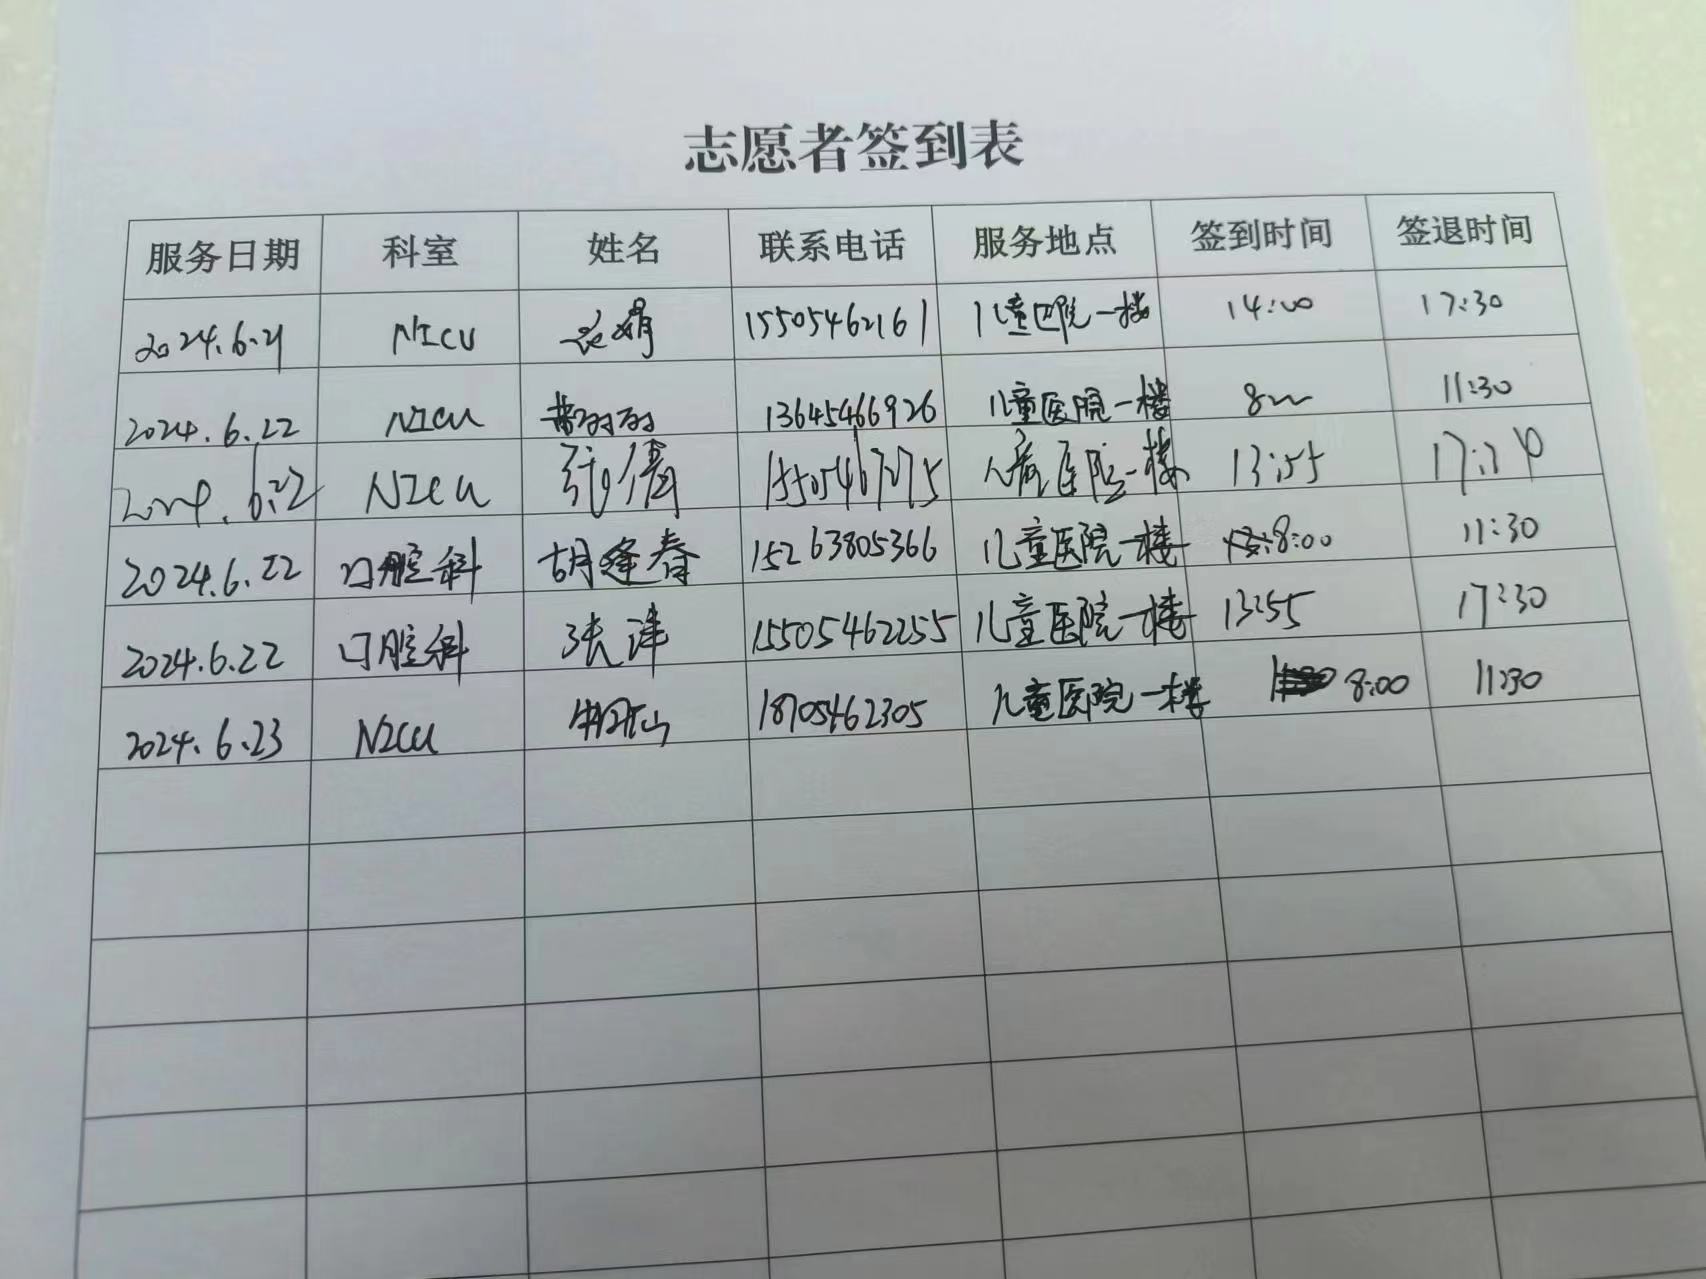 志愿者签到表
服务日期 科室 姓名 联系电话 服务地点 签到时间 签退时间
2024.6.21 NICU 15505462161 儿童医院一楼 14:00 17:30
2024.6.22 NICU 13645466926 儿童医院一楼 8 11:30
2024.6.22 NICU 张倩 儿童医院一楼 13:55 17:30
2024.6.22 口腔科 胡逢春 15263805366 儿童医院一楼 8:00 11:30
2024.6.22 口腔科 张津 15505462255 儿童医院一楼 13:55 17:30
2024.6.23 NICU 18705462305 儿童医院一楼 8:00 11:30